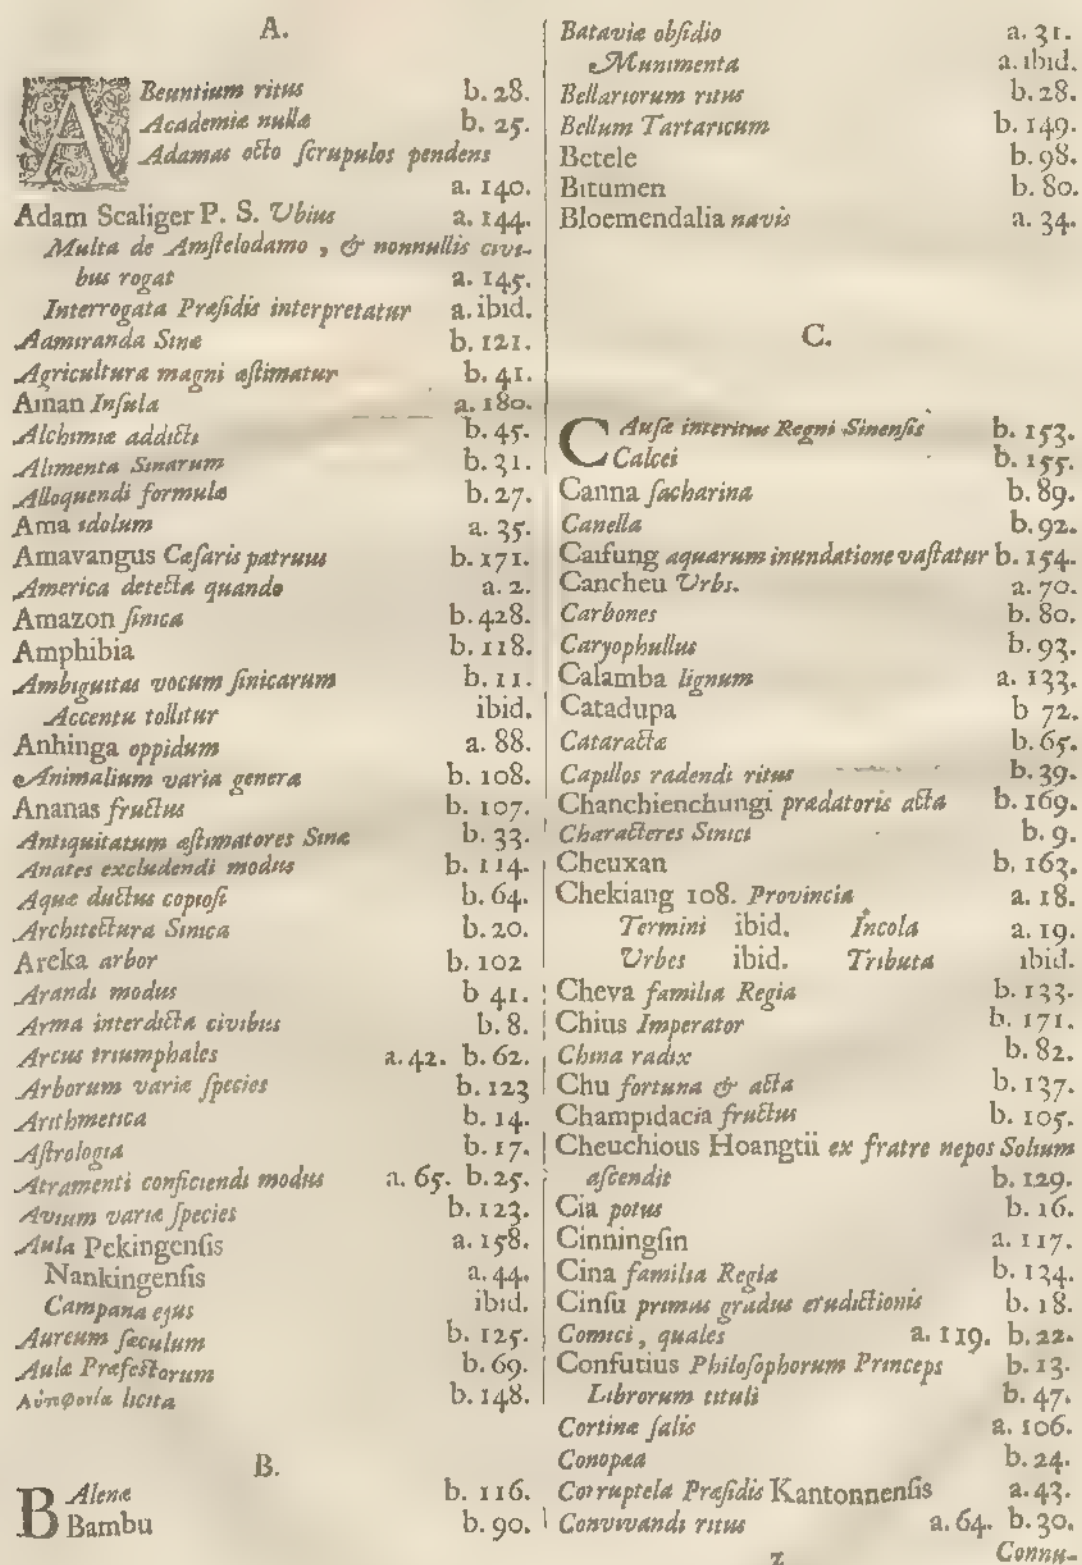 A.
ABeuntium ritus b. 28.
Academiæ nullæ b. 25.
Adamas octo ſcrupulos pendens
a. 140.
Adam Scaliger P. S. Ubius a. 144.
Multa de Amſtelodamo, & nonnullis civi-
bus rogat a. 145.
Interrogata Præſidis interpretatur a. ibid.
Admiranda Sinæ b. 121.
Agricultura magni æſtimatur b. 41.
Ainan Inſula a. 180.
Alchimiæ addicti b. 45.
Alimenta Sinarum b. 31.
Alloquendi formulæ b. 27.
Ama idolum a. 35.
Amavangus Cæſaris patruus b. 171.
America detecta quando a. 2.
Amazon ſinica b. 428.
Amphibia b. 118.
Ambiguitas vocum ſinicarum b. 11.
Accentu tollitur ibid.
Anhinga oppidum a. 88.
Animalium varia genera b. 108.
Ananas fructus b. 107.
Antiquitatum æſtimatores Sinæ b. 33.
Anates excludendi modus b. 114.
Aquæ ductus copioſi b. 64.
Architectura Sinica b. 20.
Areka arbor b. 102
Arandi modus b 41.
Arma interdicta civibus b. 8.
Arcus triumphales a. 42. b. 62.
Arborum variæ ſpecies b. 123
Arithmetica b. 14.
Aſtrologia b. 17.
Atramenti conficiendi modus a. 65. b. 25.
Avium variæ ſpecies b. 123.
Aula Pekingenſis a. 158.
Nankingenſis a. 44.
Campana ejus ibid.
Aureum ſæculum b. 125.
Aulæ Præfectorum b. 69.
Αὐτοφονία licita b. 148.
B.
BAlenæ b. 116.
Bambu b. 90.
Bataviæ obſidio a. 31.
Munimenta a. ibid.
Bellariorum ritus b. 28.
Bellum Tartaricum b. 149.
Betele b. 98.
Bitumen b. 80.
Bloemendalia navis a. 34.
C.
CAuſæ interitus Regni Sinenſis b. 153.
Calcei b. 155.
Canna ſacharina b. 89.
Canella b. 92.
Caifung aquarum inundatione vaſtatur b. 154.
Cancheu Urbs. a. 70.
Carbones b. 80.
Caryophullus b. 93.
Calamba lignum a. 133.
Catadupa b 72.
Cataractæ b. 65.
Capillos radendi ritus b. 39.
Chanchienchungi prædatoris acta b. 169.
Characteres Sinici b. 9.
Cheuxan b. 163.
Chekiang 108. Provincia a. 18.
Termini ibid. Incola a. 19.
Urbes ibid. Tributa ibid.
Cheva familia Regia b. 133.
Chius Imperator b. 171.
China radix b. 82.
Chu fortuna & acta b. 137.
Champidacia fructus b. 105.
Cheuchious Hoangtii ex fratre nepos Solium
aſcendit b. 129.
Cia potus b. 16.
Cinningſin a. 117.
Cina familia Regia b. 134.
Cinſu primus gradus eruditionis b. 18.
Comici, quales a. 119. b. 22.
Confutius Philoſophorum Princeps b. 13.
Librorum tituli b. 47.
Cortinæ ſalis a. 106.
Conopæa b. 24.
Corruptela Præſidis Kantonnenſis a. 43.
Convivandi ritus a. 64. b. 30.
z
Connu-